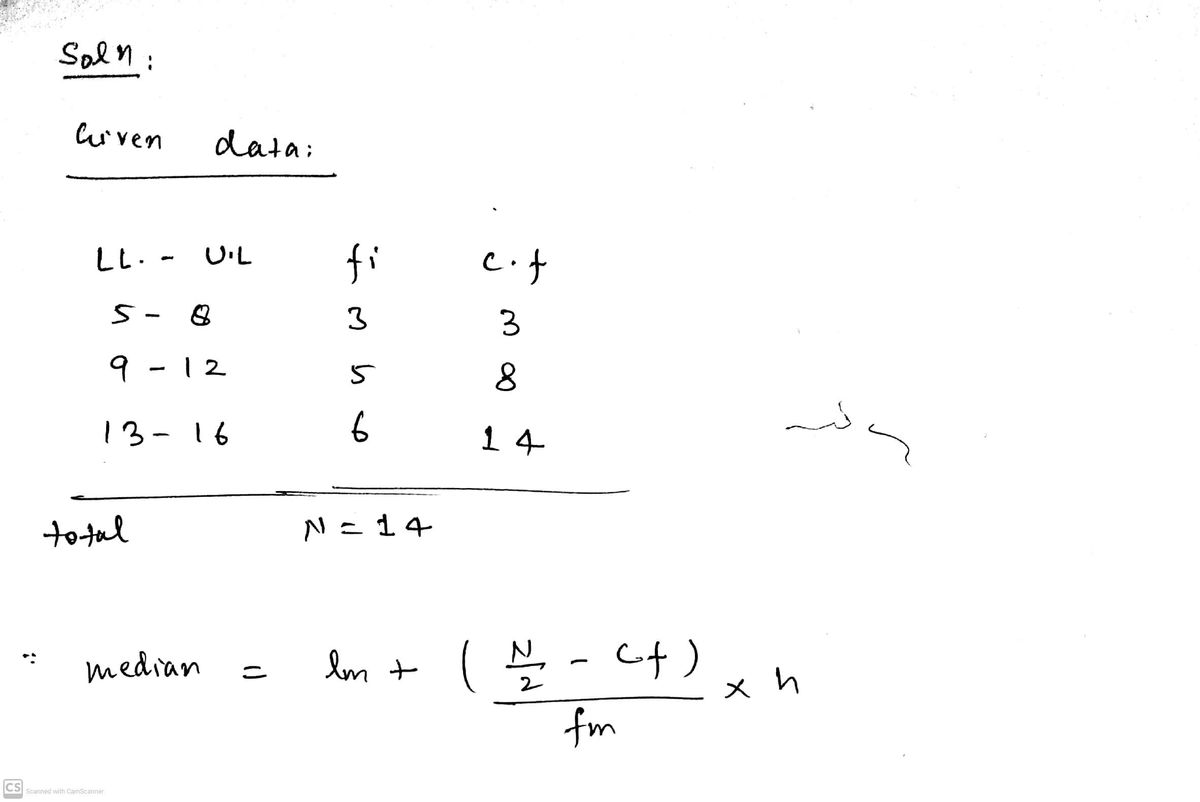 Soln:
Given data:
LL. - U.L fi c.f
5 - 8 3 3
9 - 12 5 8
13 - 16 6 14
total N = 14
∵ median = lm + ( N/2 - Cf ) / fm × h
CS Scanned with CamScanner